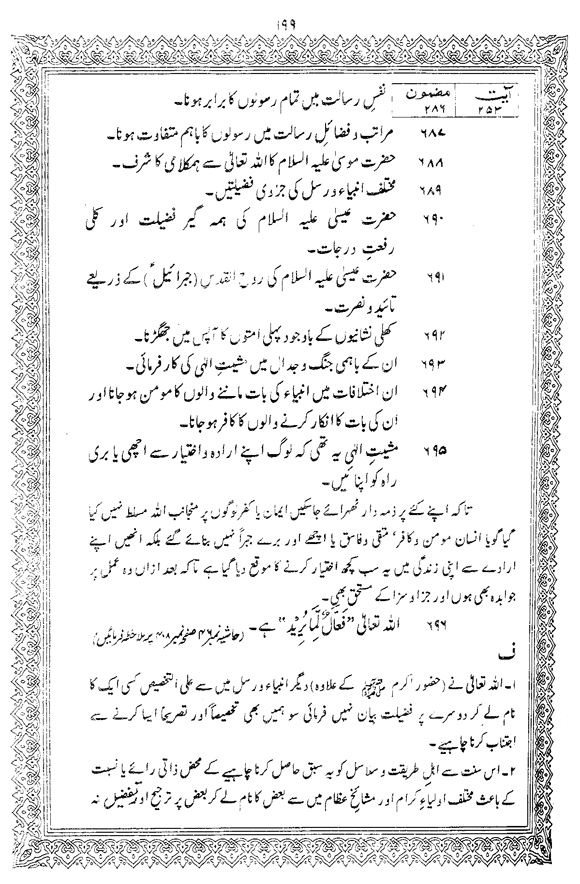 ۱۹۹
آیت مضمون نفسِ رسالت میں تمام رسولوں کا برابر ہونا۔
۲۵۳ ۲۸۶
۶۸۷ مراتب و فضائلِ رسالت میں رسولوں کا باہم متفاوت ہونا۔
۶۸۸ حضرت موسیٰ علیہ السلام کا اللہ تعالیٰ سے ہمکلامی کا شرف۔
۶۸۹ مختلف انبیاء و رسل کی جزوی فضیلتیں۔
۶۹۰ حضرت عیسیٰ علیہ السلام کی ہمہ گیر فضیلت اور کلی
رفعتِ درجات۔
۶۹۱ حضرت عیسیٰ علیہ السلام کی روح القدس (جبرائیلؑ) کے ذریعے
تائید و نصرت۔
۶۹۲ کھلی نشانیوں کے باوجود پہلی امتوں کا آپس میں جھگڑنا۔
۶۹۳ ان کے باہمی جنگ و جدال میں مشیتِ الٰہی کی کار فرمائی۔
۶۹۴ ان اختلافات میں انبیاء کی بات ماننے والوں کا مومن ہو جانا اور
ان کی بات کا انکار کرنے والوں کا کافر ہو جانا۔
۶۹۵ مشیتِ الٰہی یہ تھی کہ لوگ اپنے ارادہ و اختیار سے اچھی یا بری
راہ کو اپنائیں۔
تاکہ اپنے کئے پر ذمہ دار ٹھہرائے جا سکیں ایمان یا کفر لوگوں پر منجانب اللہ مسلط نہیں کیا
گیا گویا انسان مومن و کافر، متقی و فاسق یا اچھے اور برے جبراً نہیں بنائے گئے بلکہ انھیں اپنے
ارادے سے اپنی زندگی میں یہ سب کچھ اختیار کرنے کا موقع دیا گیا ہے تاکہ بعد ازاں وہ عمل پر
جوابدہ بھی ہوں اور جزا و سزا کے مستحق بھی۔
۶۹۶ اللہ تعالیٰ ”فَعَّالٌ لِّمَا یُرِیْد“ ہے۔ (حاشیہ نمبر ۴۶ صفحہ نمبر ۴۰۸ پر ملاحظہ فرمائیں)
ف
۱۔ اللہ تعالیٰ نے (حضور اکرم ﷺ کے علاوہ) دیگر انبیاء و رسل میں سے علی التخصیص کسی ایک کا
نام لے کر دوسرے پر فضیلت بیان نہیں فرمائی سو ہمیں بھی تخصیصاً اور تصریحاً ایسا کرنے سے
اجتناب کرنا چاہیے۔
۲۔ اس سنت سے اہلِ طریقت و سلاسل کو یہ سبق حاصل کرنا چاہیے کے محض ذاتی رائے یا نسبت
کے باعث مختلف اولیاءِ کرام اور مشائخِ عظام میں سے بعض کا نام لے کر بعض پر ترجیح اور تفضیل نہ